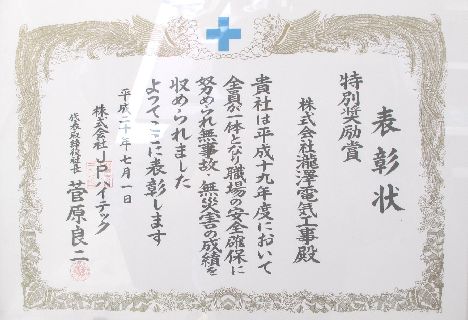 表彰状
特別奨励賞
株式会社瀧澤電気工事殿
貴社は平成十九年度において
全員が一体となり職場の安全確保に
努められ無事故 無災害の成績を
収められました
よってここに表彰します
平成二十年七月一日
株式会社JPハイテック
代表取締役社長 菅原良二